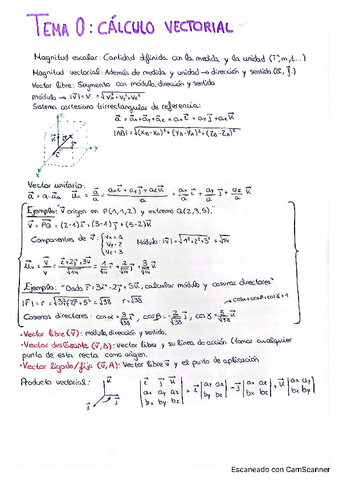 TEMA 0: CÁLCULO VECTORIAL
Magnitud escalar: Cantidad definida con la medida y la unidad (T, m, t...)
Magnitud vectorial: Además de medida y unidad → dirección y sentido
Vector libre: Segmento con módulo, dirección y sentido
módulo → |v⃗| = V = √(Vx² + Vy² + Vz²)
Sistema cartesiano trirrectangular de referencia:
a⃗ = a⃗x + a⃗y + a⃗z = ax i⃗ + ay j⃗ + az k⃗
|AB| = √((XB - XA)² + (YB - YA)² + (ZB - ZA)²)
Vector unitario:
a⃗ = a · u⃗a   u⃗a = a⃗/a = (ax i⃗ + ay j⃗ + az k⃗)/a = ax/a i⃗ + ay/a j⃗ + az/a k⃗
Ejemplo: "v⃗ origen en P(1,1,2) y extremo Q(2,3,5)."
v⃗ = PQ = (2-1) i⃗ + (3-1) j⃗ + (5-2) k⃗
Componentes de v⃗: Vx = 1 Vy = 2 Vz = 3   Módulo |v⃗| = √(1² + 2² + 3²) = √14
u⃗v = v⃗/v = (i⃗ + 2j⃗ + 3k⃗)/√14 = 1/√14 i⃗ + 2/√14 j⃗ + 3/√14 k⃗
Ejemplo: "Dado r⃗ = 3i⃗ - 2j⃗ + 5k⃗, calcular módulo y cosenos directores"
|r⃗| = r = √(3² + 2² + 5²) = √38   r = √38
Cosenos directores: cos α = 3/√38, cos β = -2/√38, cos γ = 5/√38
• Vector libre (v⃗): módulo, dirección y sentido.
• Vector deslizante (v⃗, Δ): vector libre y su línea de acción (tomar cualquier
punto de esta recta como origen.
• Vector ligado/fijo (v⃗, A): Vector libre v⃗ y el punto de aplicación
Producto vectorial: | i⃗ j⃗ k⃗ ; ax ay az ; bx by bz | = i⃗ | ay az ; by bz | - j⃗ | ax az ; bx bz | + k⃗ | ax ay ; bx by |
Escaneado con CamScanner